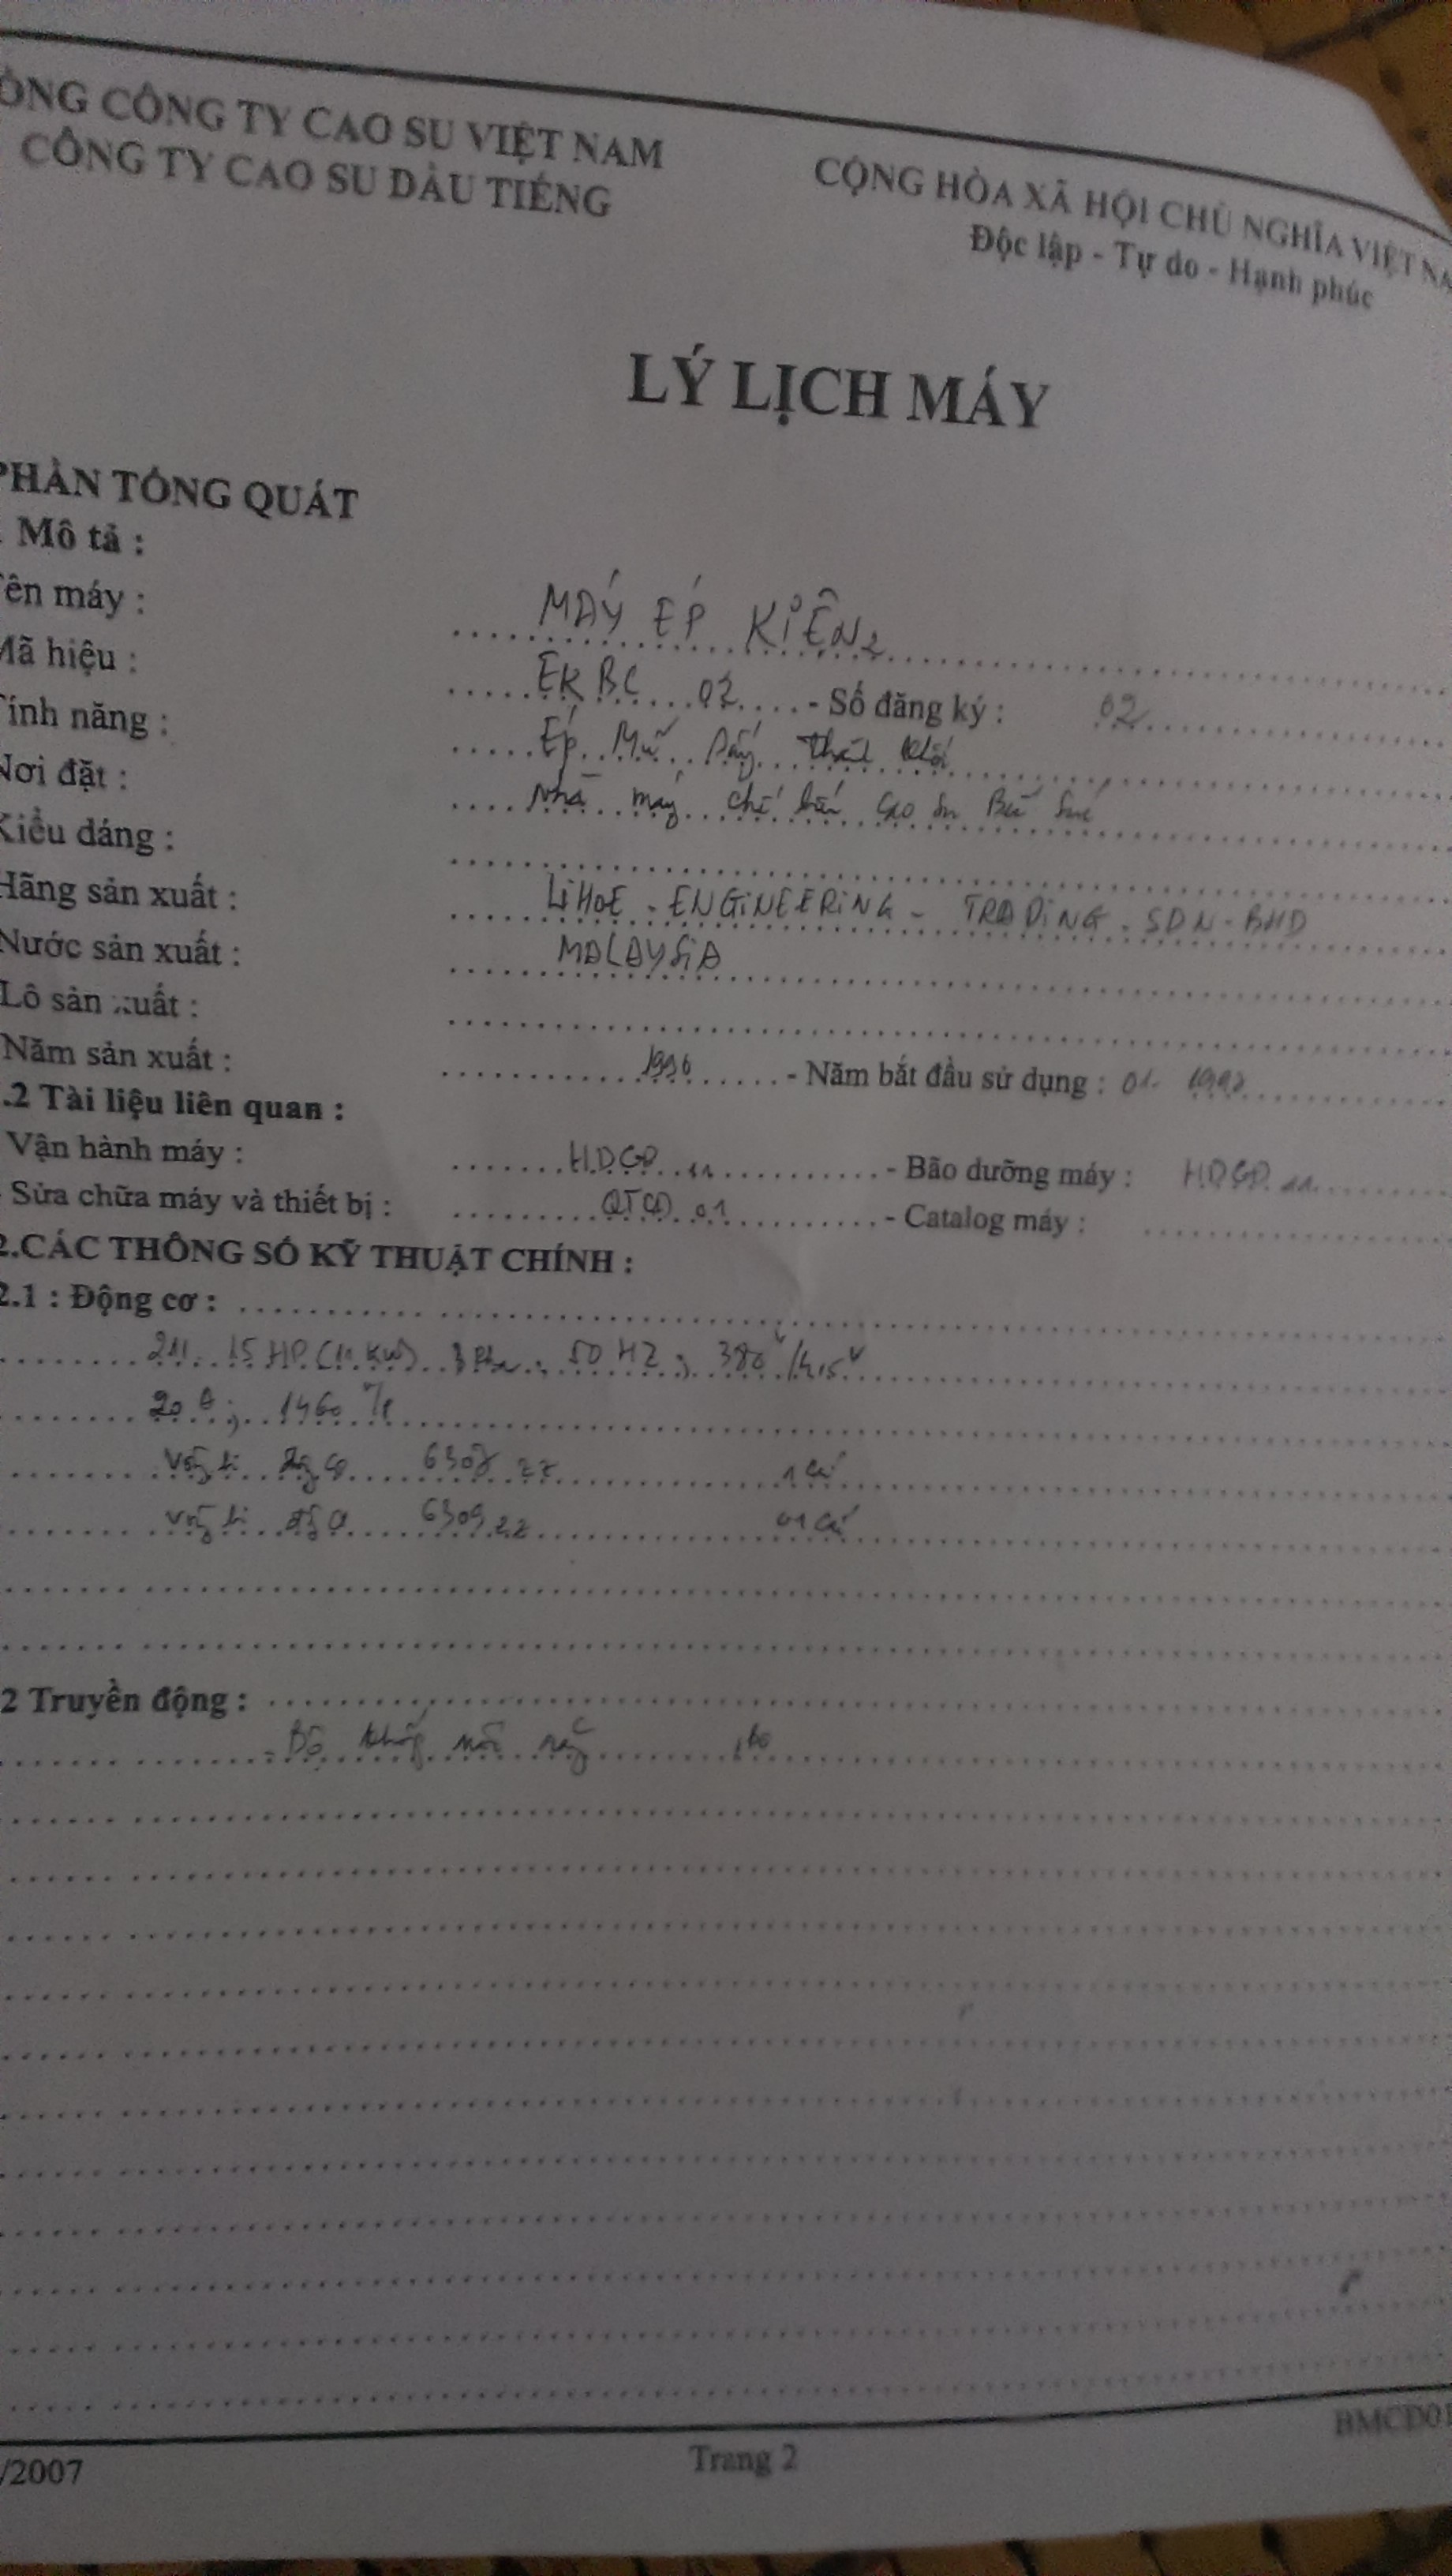 ỔNG CÔNG TY CAO SU VIỆT NAM
CÔNG TY CAO SU DẦU TIẾNG
CỘNG HÒA XÃ HỘI CHỦ NGHĨA VIỆT NA
Độc lập - Tự do - Hạnh phúc
LÝ LỊCH MÁY
PHẦN TỔNG QUÁT
Mô tả :
Tên máy : MÁY ÉP KIỆN 2
Mã hiệu : EKBC 02 - Số đăng ký : 02
Tính năng : Ép Mủ thành khối
Nơi đặt : Nhà máy chế biến cao su Bến Súc
Kiểu dáng :
Hãng sản xuất : LiHOE - ENGiNEERiNG - TRADiNG - SDN - BHD
Nước sản xuất : MALAYSiA
Lô sản xuất :
Năm sản xuất : 1996 - Năm bắt đầu sử dụng : 01-
.2 Tài liệu liên quan :
Vận hành máy : HDCD 11 - Bão dưỡng máy : HDCD 11
- Sửa chữa máy và thiết bị : QTCD 01 - Catalog máy :
2.CÁC THÔNG SỐ KỸ THUẬT CHÍNH :
2.1 : Động cơ :
15 HP (11 KW) 3 Pha ; 50 HZ ; 380V/415V
20 A ; 1460
Vòng bi động cơ ZZ 1 cái
Vòng bi động cơ 6309 ZZ 01 cái
2 Truyền động :
- Bộ khớp nối 1 bộ
/2007
Trang 2
BMCD01